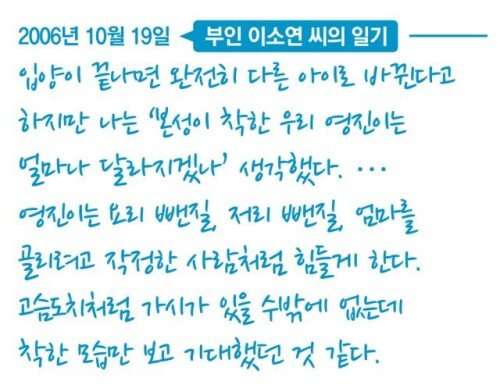 2006년 10월 19일 부인 이소연 씨의 일기
입양이 끝나면 완전히 다른 아이로 바뀐다고
하지만 나는 ‘본성이 착한 우리 영진이는
얼마나 달라지겠나’ 생각했다. …
영진이는 요리 뺀질, 저리 뺀질, 엄마를
골리려고 작정한 사람처럼 힘들게 한다.
고슴도치처럼 가시가 있을 수밖에 없는데
착한 모습만 보고 기대했던 것 같다.